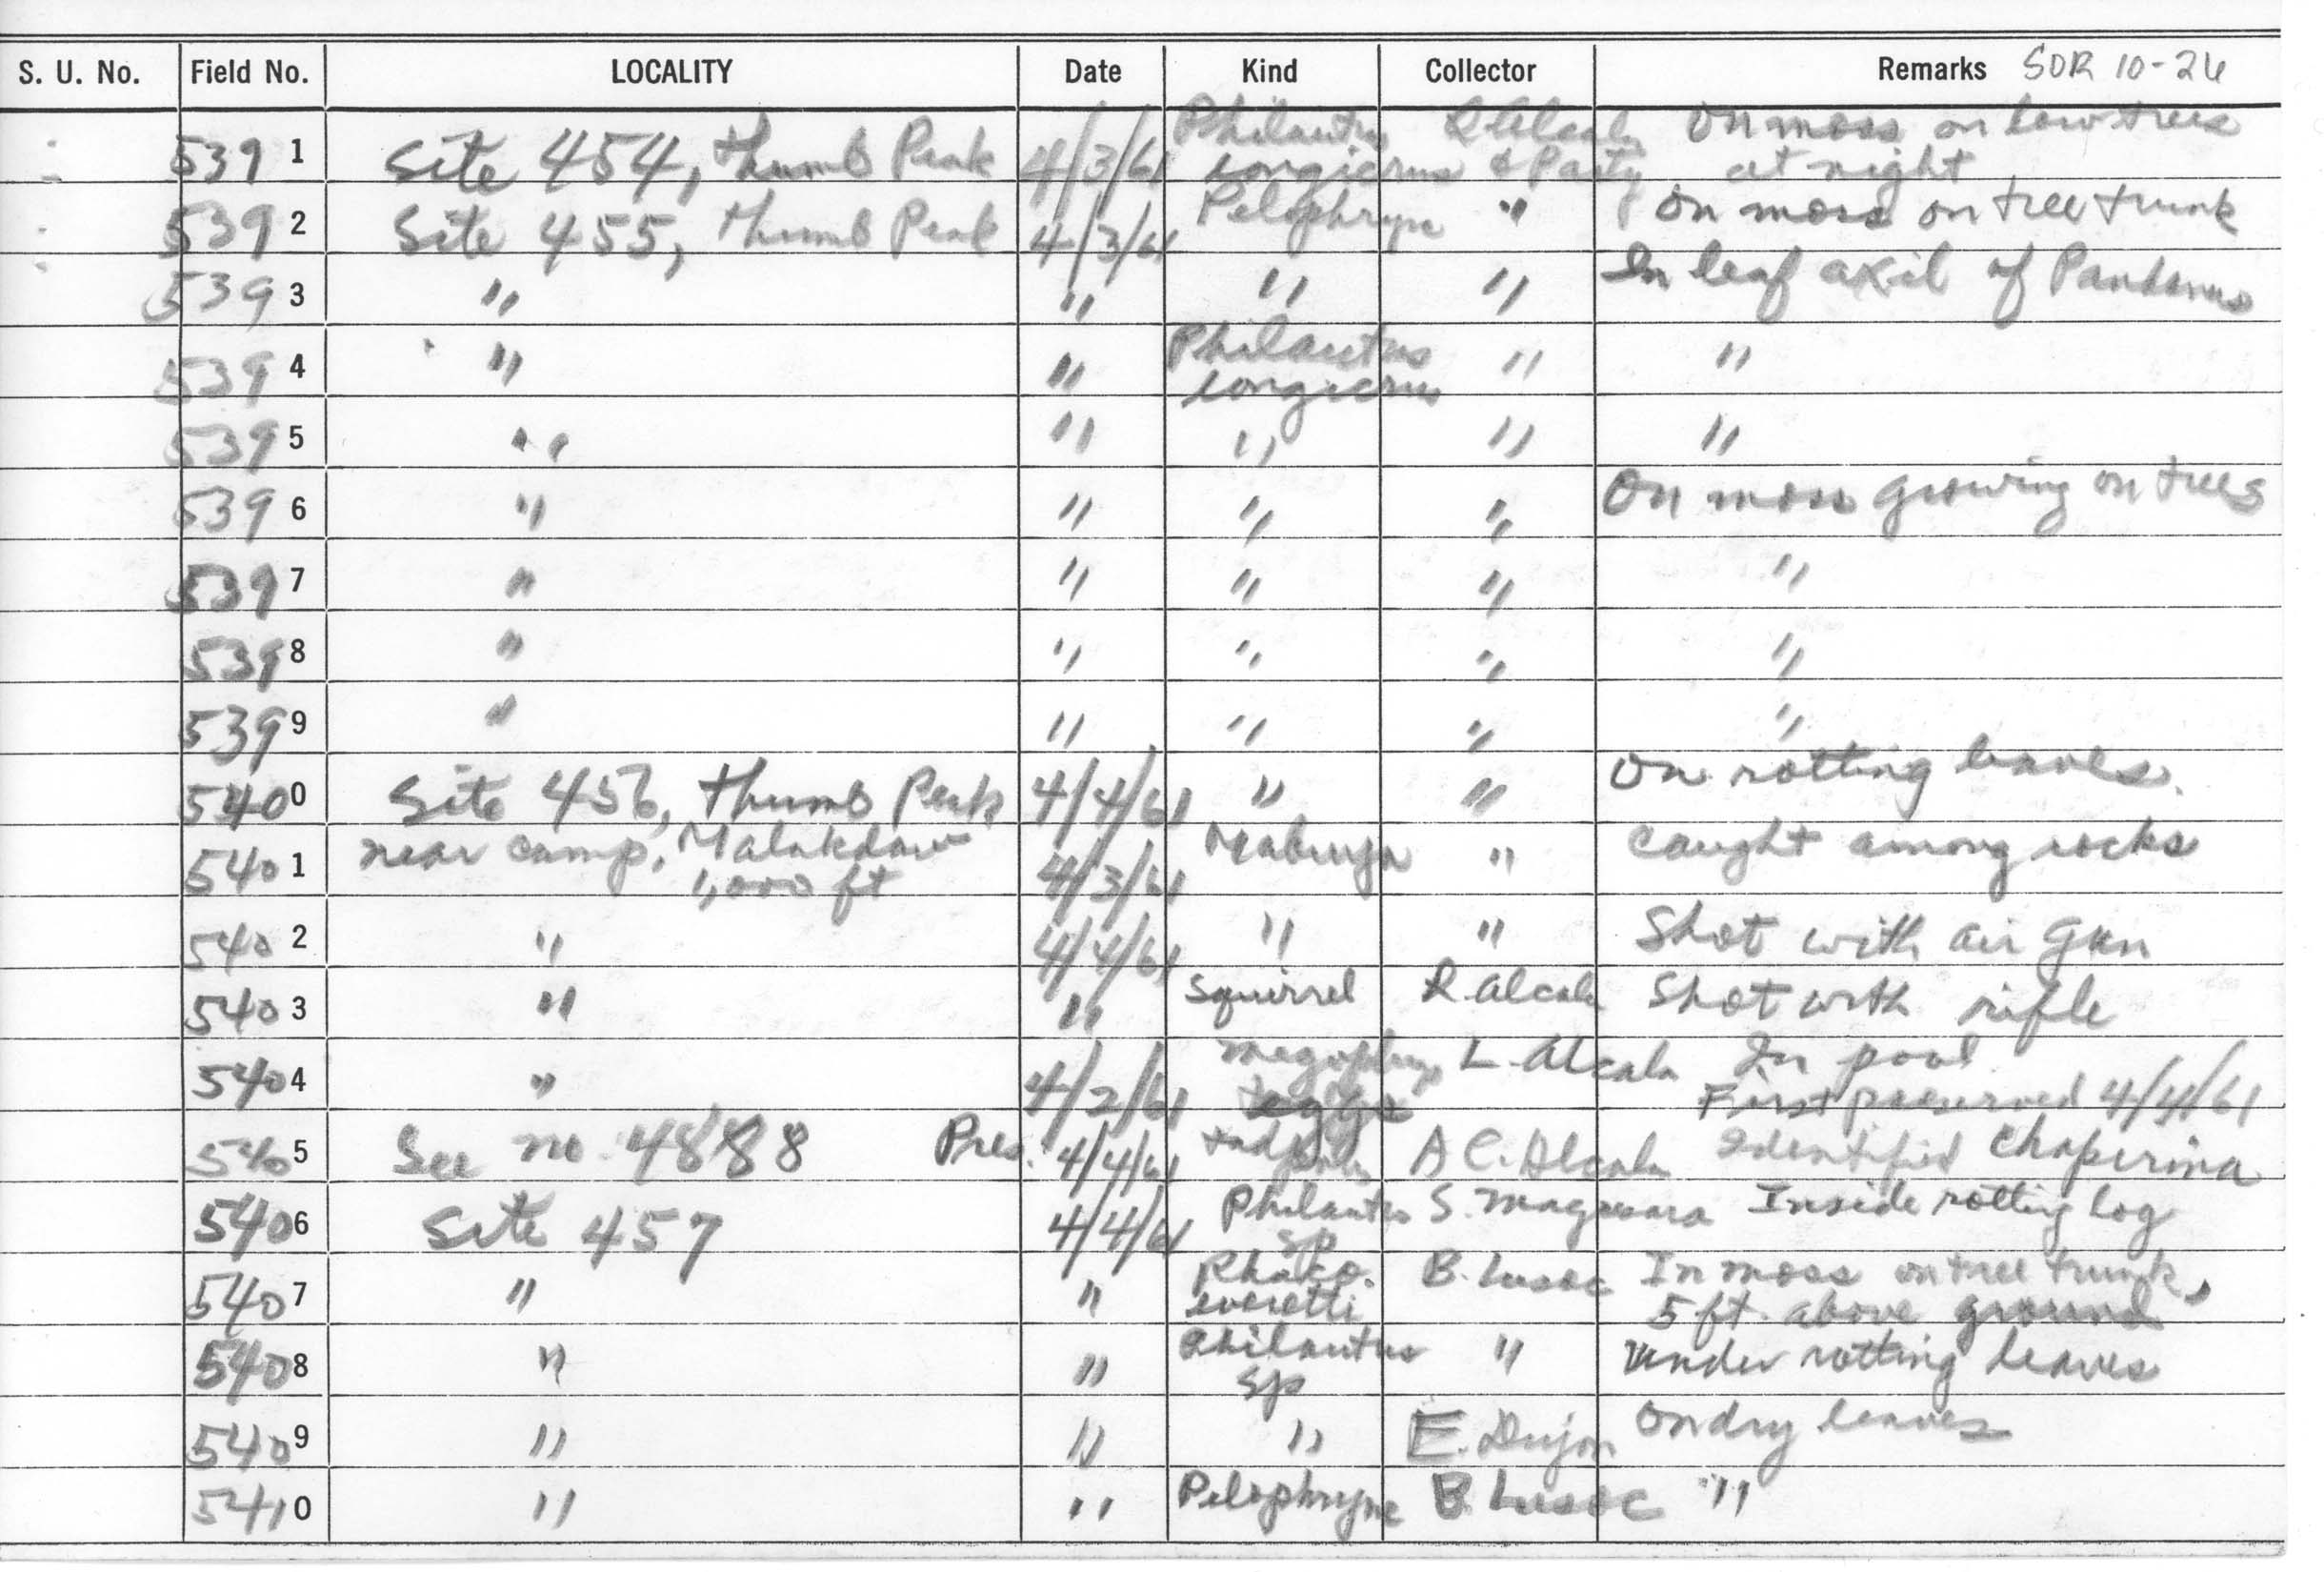 S. U. No. Field No. LOCALITY Date Kind Collector Remarks SDR 10-26
5391 Site 454, Thumb Peak 4/3/61 Philautus longicrus R. Alcala & Party On moss on low trees at night
5392 Site 455, Thumb Peak 4/3/61 Pelophryne " On moss on tree trunk
5393 " " " " In leaf axil of Pandanus
5394 " " Philautus longicrus " "
5395 " " " " "
5396 " " " " On moss growing on trees
5397 " " " " "
5398 " " " " "
5399 " " " " "
5400 Site 456, Thumb Peak 4/4/61 " " On rotting leaves.
5401 near camp, Malakdaw 1,000 ft 4/3/61 Mabuya " Caught among rocks
5402 " 4/4/61 " " Shot with air gun
5403 " " Squirrel R. Alcala Shot with rifle
5404 " 4/2/61 Megophrys eggs L. Alcala In pool First preserved 4/4/61
5405 See no. 4888 Pres. 4/4/61 tadpoles A. C. Alcala Identified Chaperina
5406 Site 457 4/4/61 Philautus sp S. Inside rotting log
5407 " " Rhaco. everetti B. Lusoc In moss on tree trunk, 5 ft. above ground
5408 " " Philautus sp " Under rotting leaves
5409 " " " E. Dujon On dry leaves
5410 " " Pelophryne B. Lusoc "